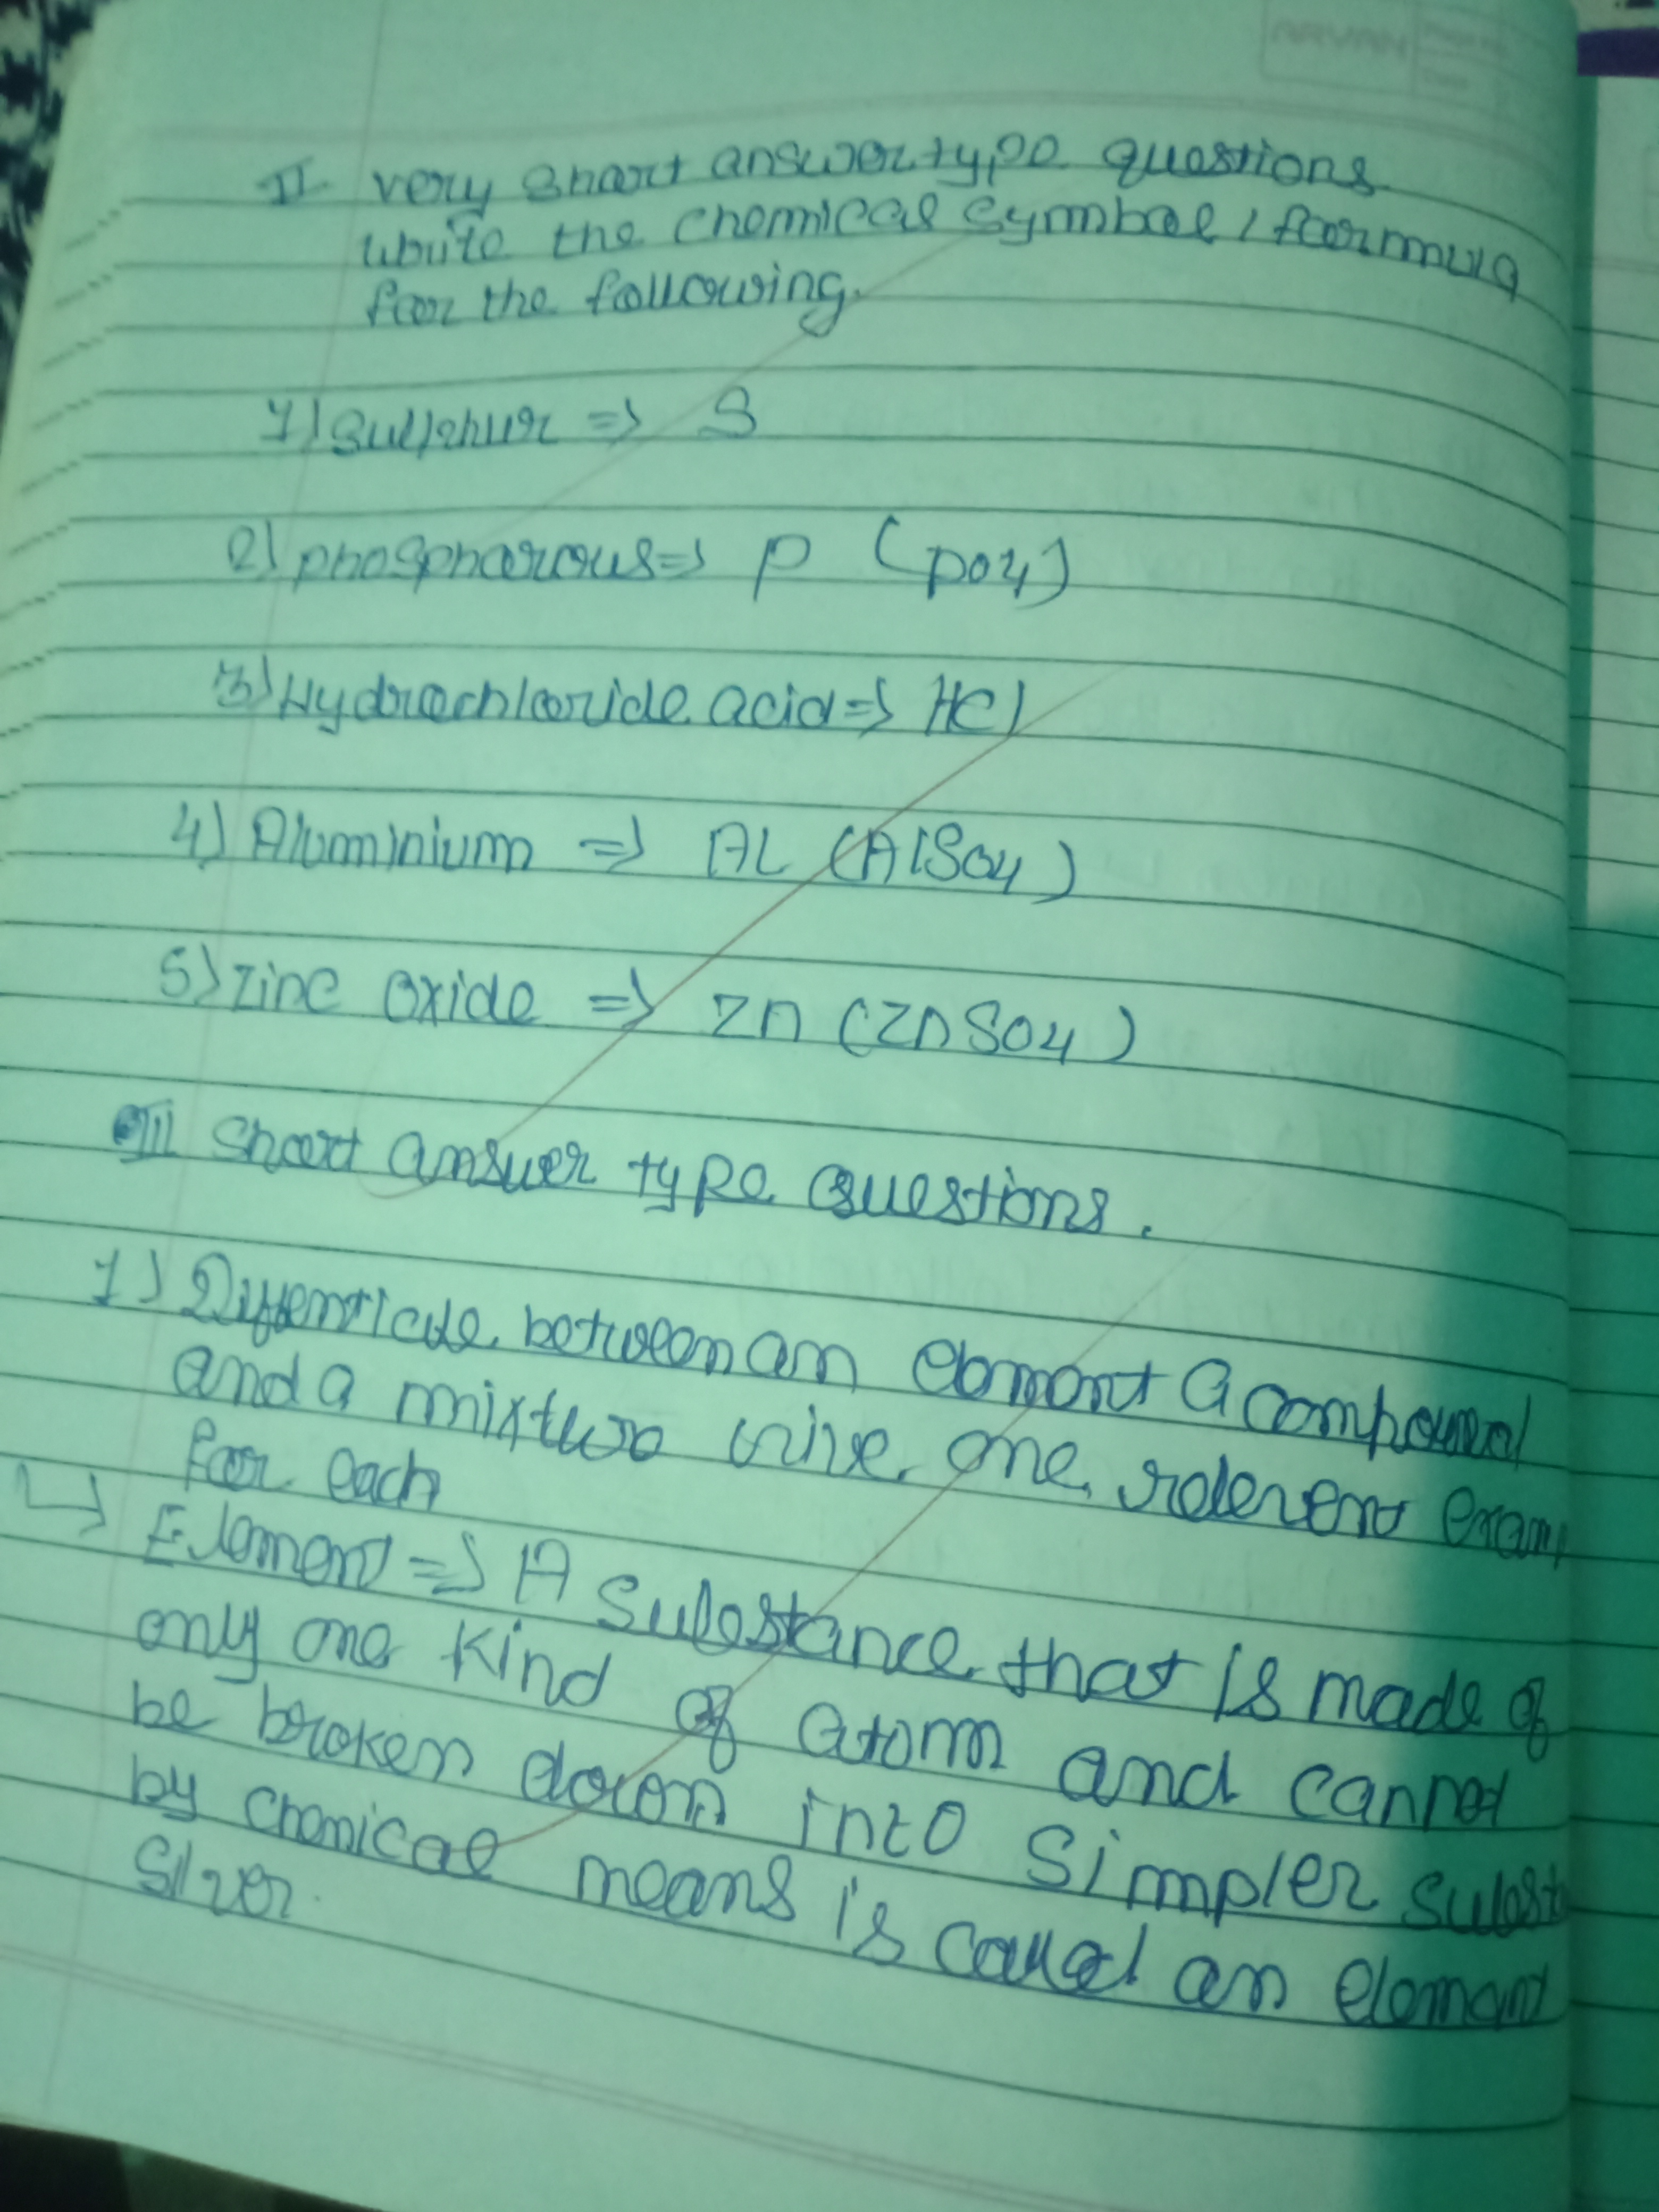 II very short answer type questions
write the chemical symbol, formula
for the following.
1) Sulphur => S
2) phosphorous => P (PO4)
3) Hydrochloride acid => HCl
4) Aluminium => AL (AlSO4)
5) Zinc oxide => Zn (ZnSO4)
III Short answer type questions.
1) between an element a compound
and a mixture Give one relevent exam
for each
Element => A Substance that is made of
only one kind of atom and cannot
be broken down into simpler subst
by chemical means is called an element
Silver.